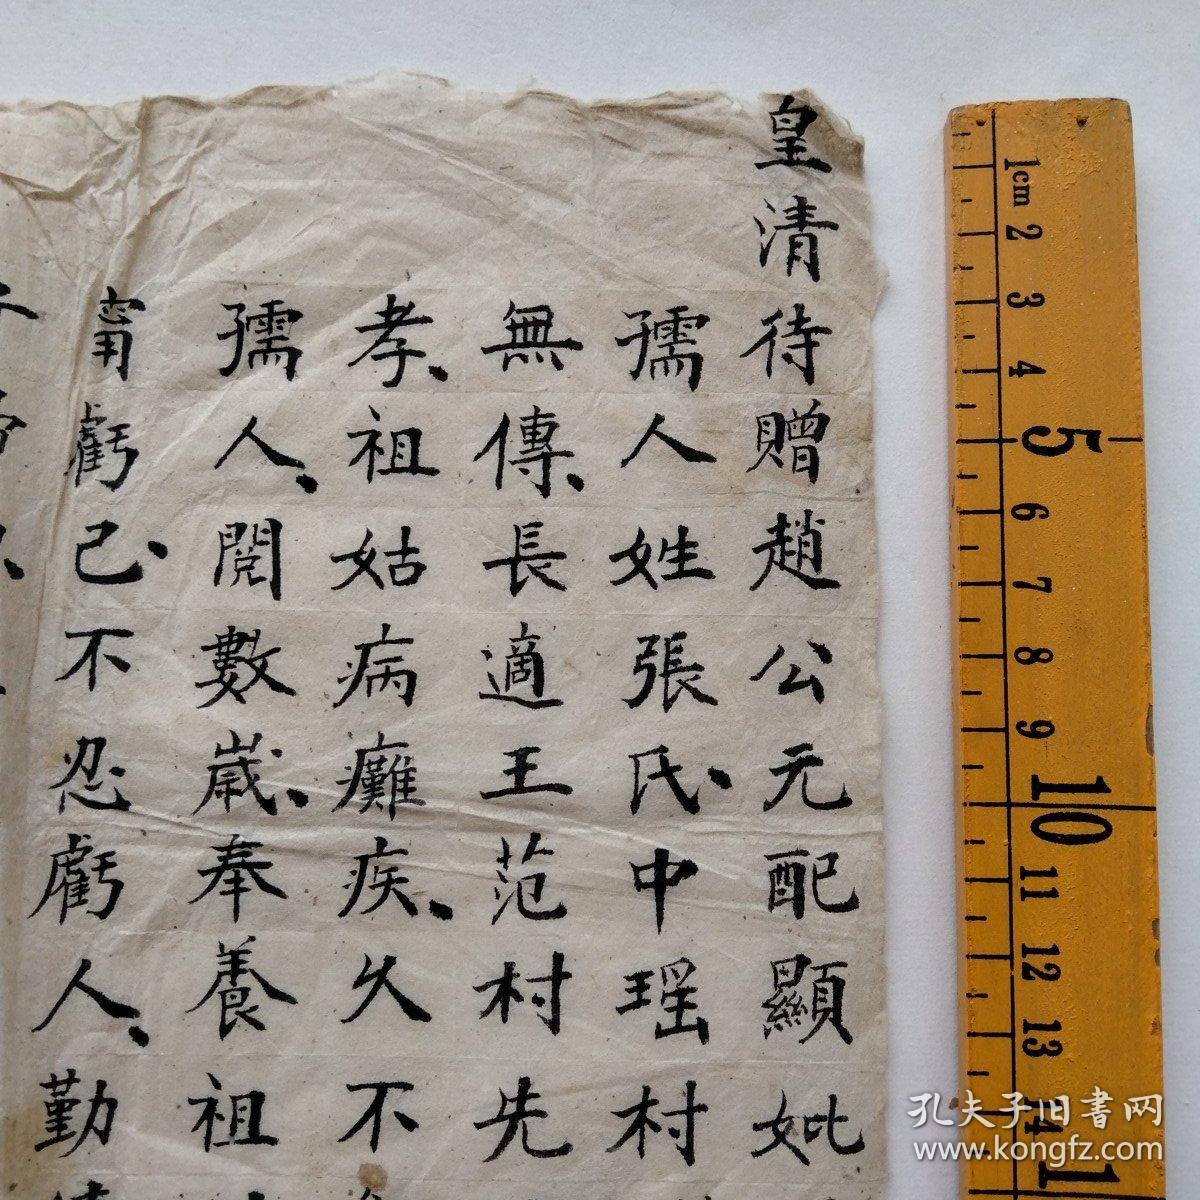 皇清待贈趙公元配顯妣
孺人姓張氏、中瑶村
無傳、長適王范村先
孝、祖姑病癱疾、久不
孺人、閱數歲、奉養祖
甯虧己、不忍虧人、勤
1cm 2 3 4 5 6 7 8 9 10 11 12 13 14
孔夫子旧書网
www.kongfz.com